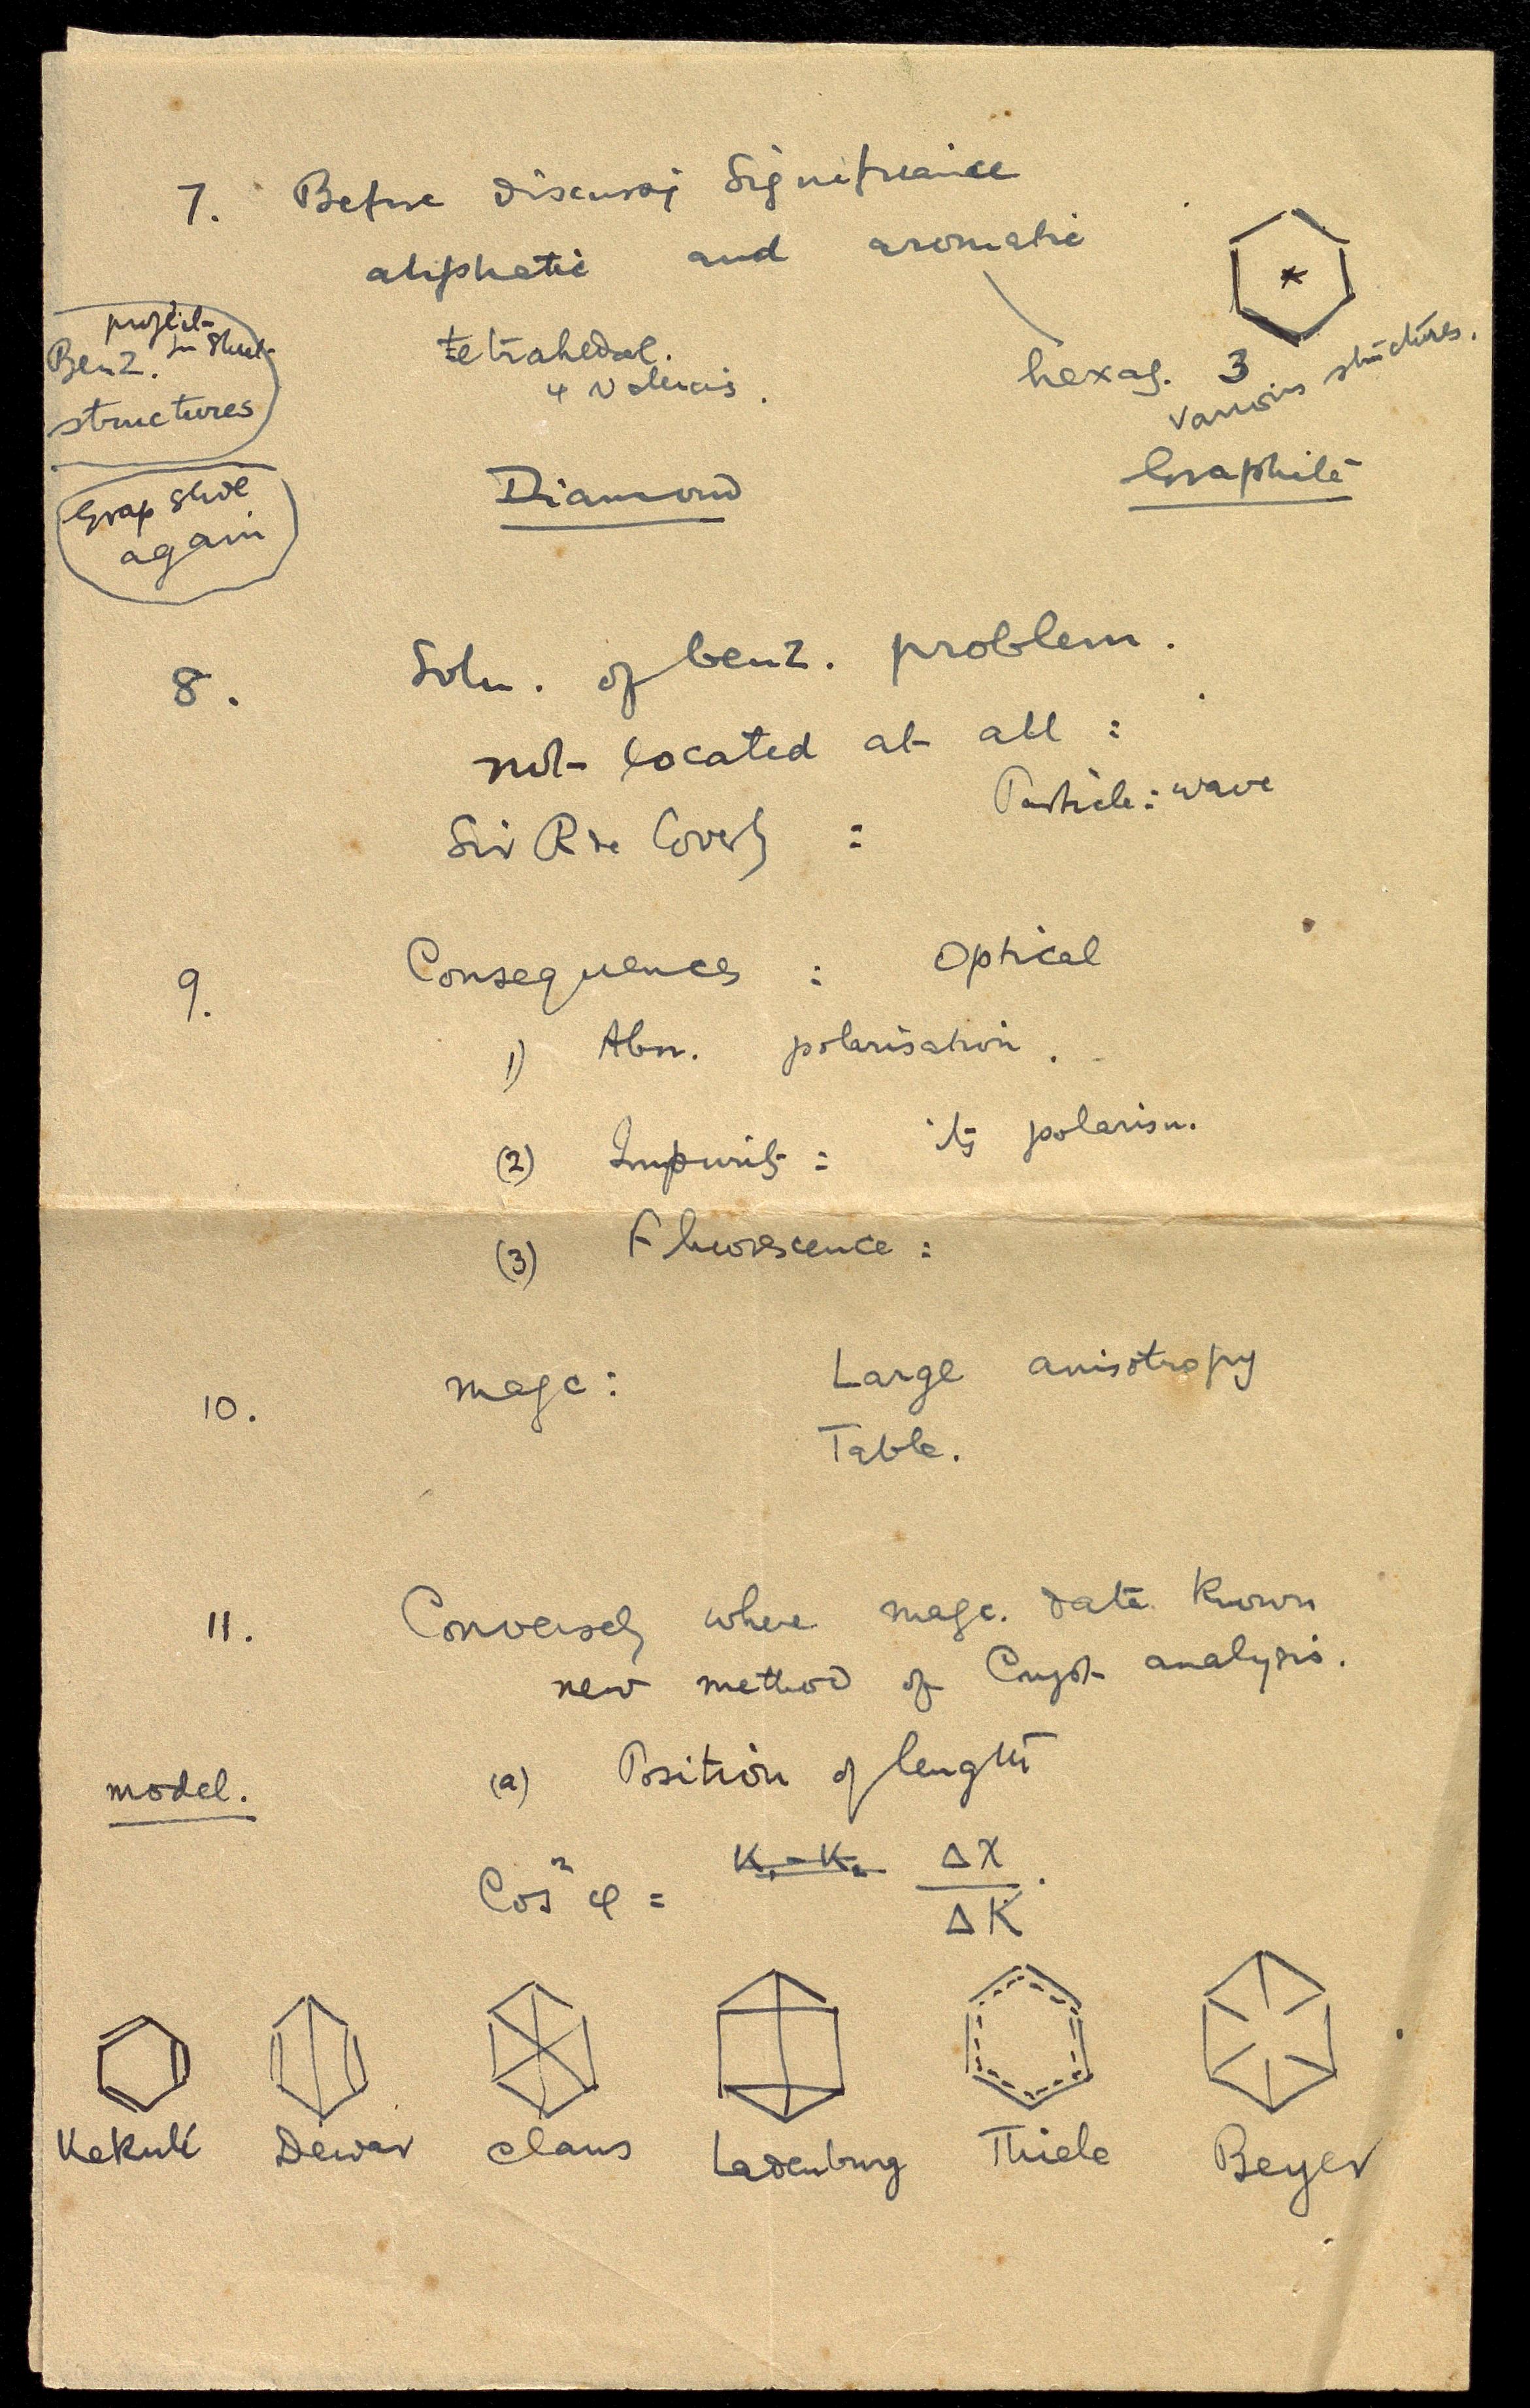 7. Before discussg Significance
aliphatic and aromatic
tetrahedral.
4 valencies.
hexag. 3
various structures.
Benz.
structures
Diamond
Graphite
Grap slide
again
8. Soln. of benz. problem.
not located at all :
Particle : wave
Sir R de Coverly :
9. Consequences : Optical
1) Abn. polarisation.
(2) Impurity : its polarisn.
(3) Fluorescence :
10. magc : Large anisotropy
Table.
11. Conversely where magc. data known
new method of Cryst analysis.
model.
(a) Position of lenghth
Cos² φ = K₁ - K₂ ΔX / ΔK.
Kekulé Dewar Claus Ladenburg Thiele Beyer